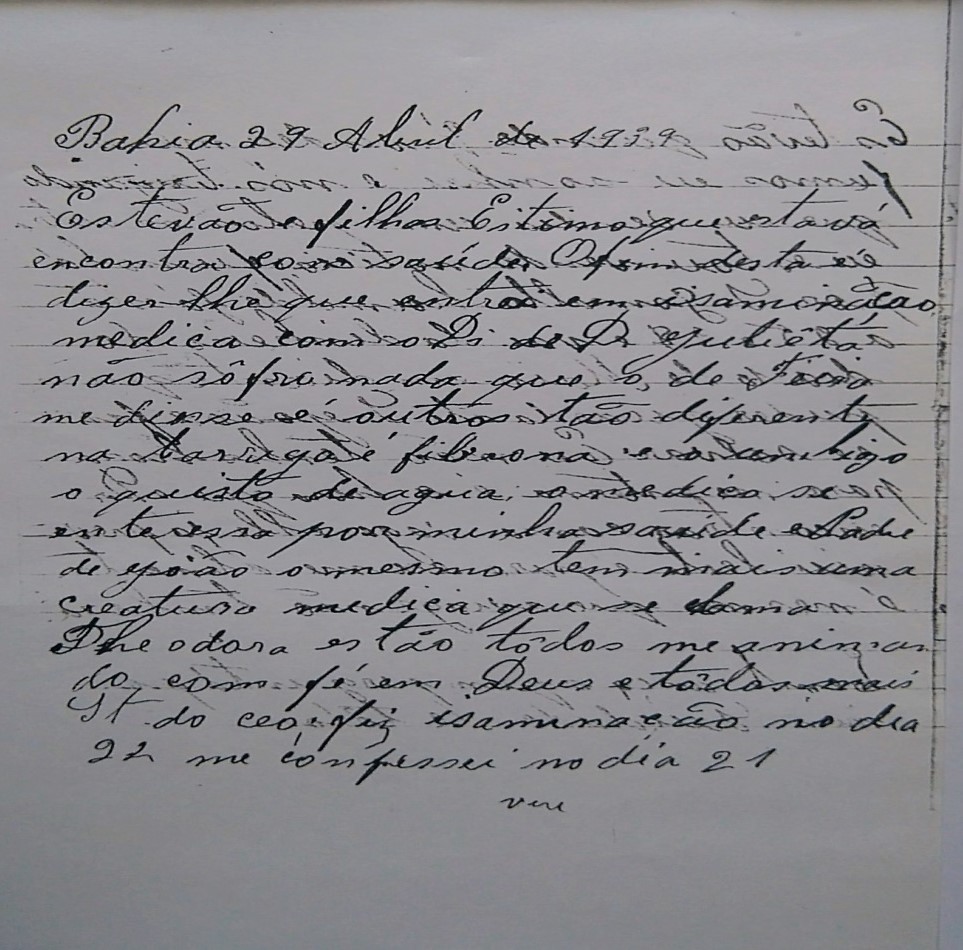 Bahia 29 Abril de 1939
Estevão e filhos Estimo que esta vá
encontra com saúde O fim desta é é
dizer lhe que entrei em isaminação
medica com o Di de Dr Yuliêta
não sôfro nada que o de Feira
me disse é outros tão diferente
na barriga é fibrona e o umbigo
o quisto de agua, o medico se
enteressa por minha saúde e Padre
de yoão o mesmo tem mais uma
creatura medica que se chama é
Theodora estão tôdos me animan
do com fé em Deus e tôdos mais
St do ceo, fiz isaminação no dia
22 me confessei no dia 21
vire